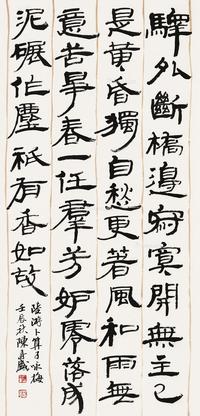 驛外斷橋邊寂寞開無主已
是黃昏獨自愁更著風和雨無
意苦爭春一任羣芳妒零落成
泥碾作塵衹有香如故
陸游卜算子咏梅
壬辰秋陳